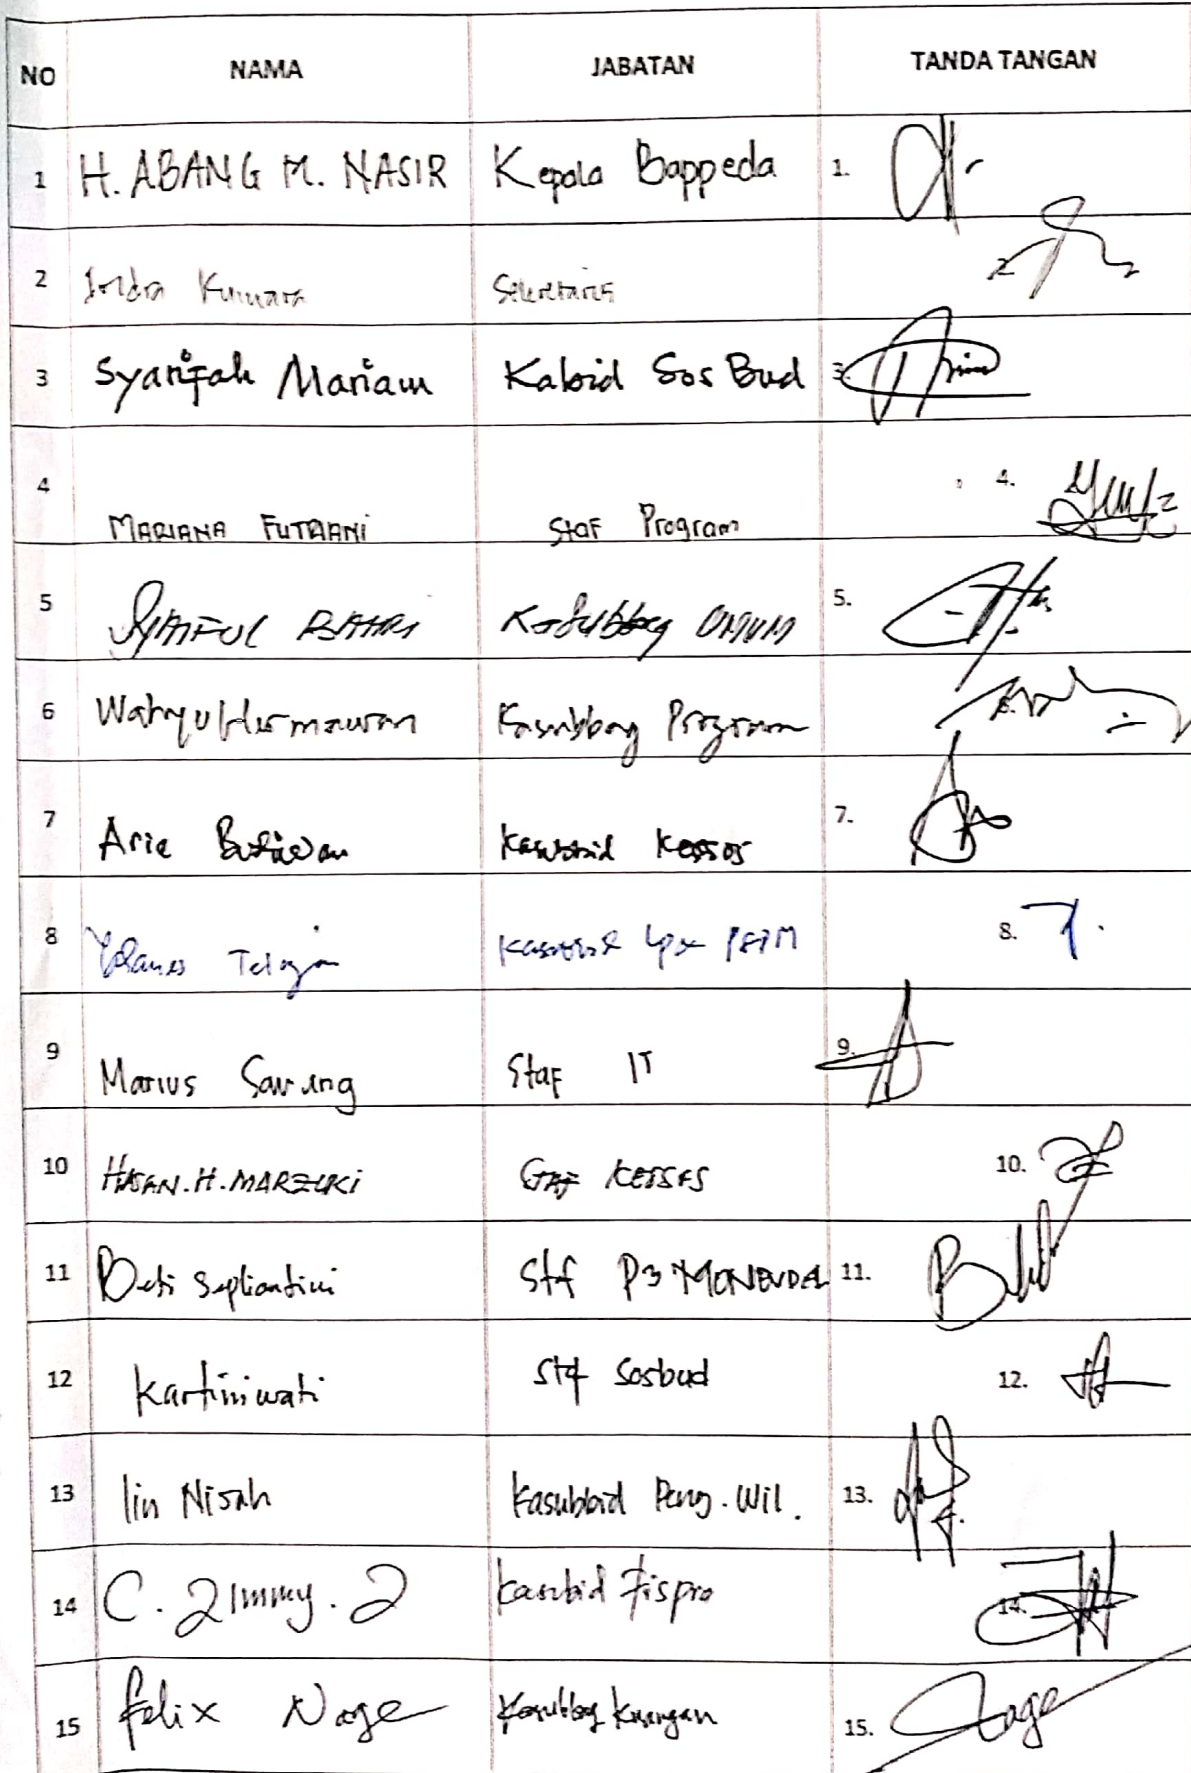 NO NAMA JABATAN TANDA TANGAN
1 H. ABANG M. NASIR Kepala Bappeda 1.
2 Indra Kumara Sekretaris 2.
3 Syarifah Mariam Kabid Sos Bud 3.
4 MARIANA FUTRIANI Staf Program 4.
5 SYAIFUL BAHRI Kasubbag UMUM 5.
6 Wahyu Hermawan Kasubbag Program 6.
7 Arie Kasubbid Kessos 7.
8 Kasubbid 8.
9 Marius Sawung Staf IT 9.
10 HASAN. H. MARZUKI Staf KESSOS 10.
11 Beti Septiantini Stf P3 MONEVDAL 11.
12 Kartiniwati Stf Sosbud 12.
13 Iin Nisah Kasubbid Peng. Wil. 13.
14 C. Jimmy. J Kasubid Fispra 14.
15 Felix Noge Kasubbag Keuangan 15.